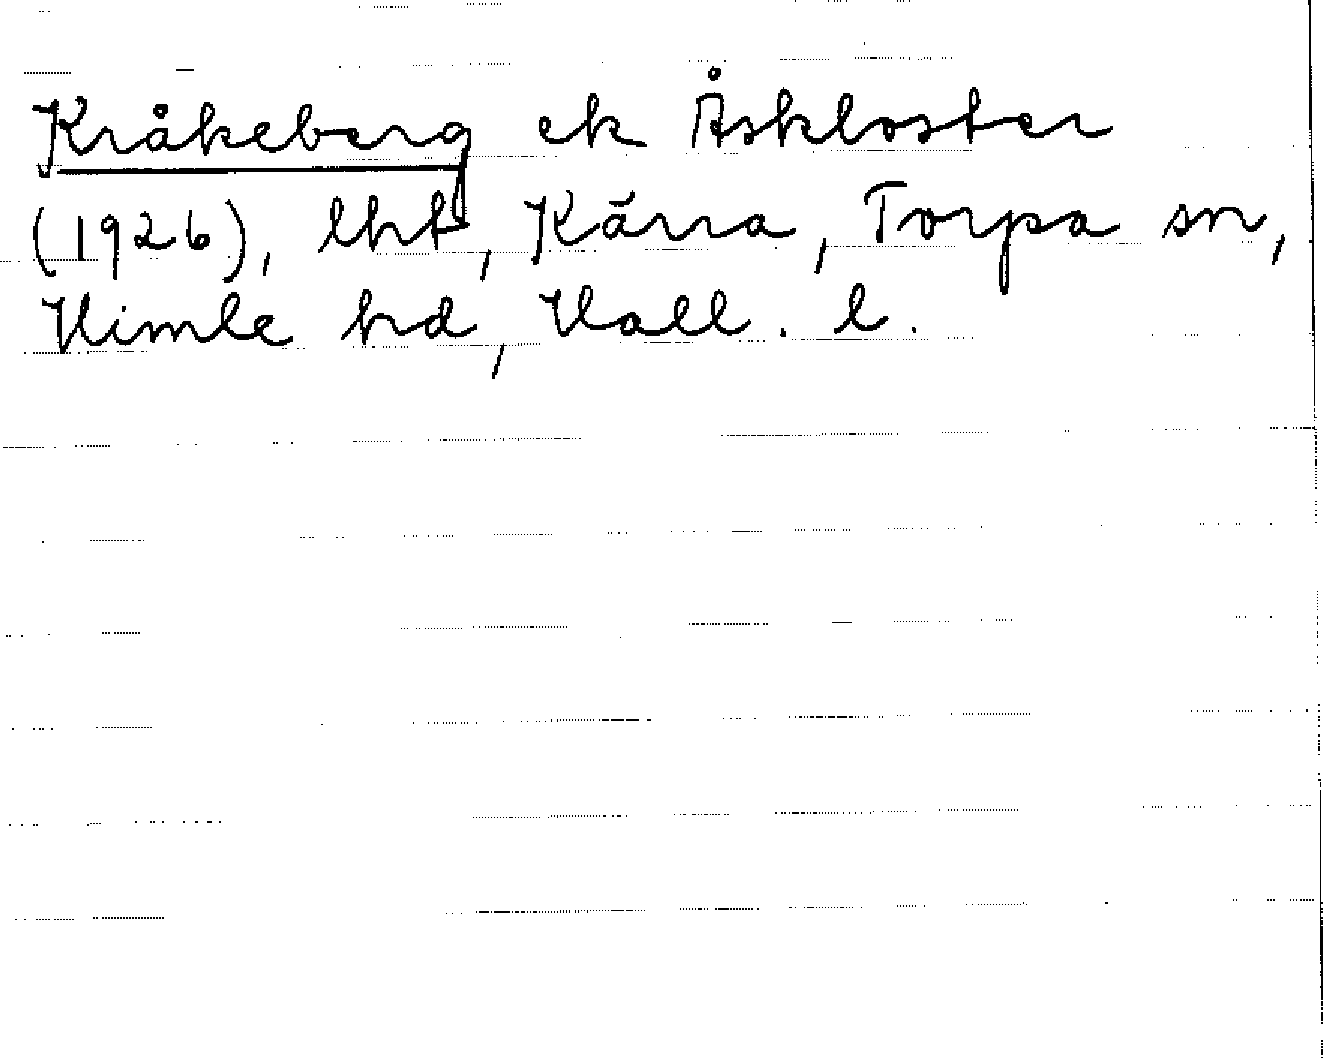 Kråkeberg ek Åskloster
(1926), lht, Kärra, Torpa sn,
Himle hd, Hall. l.